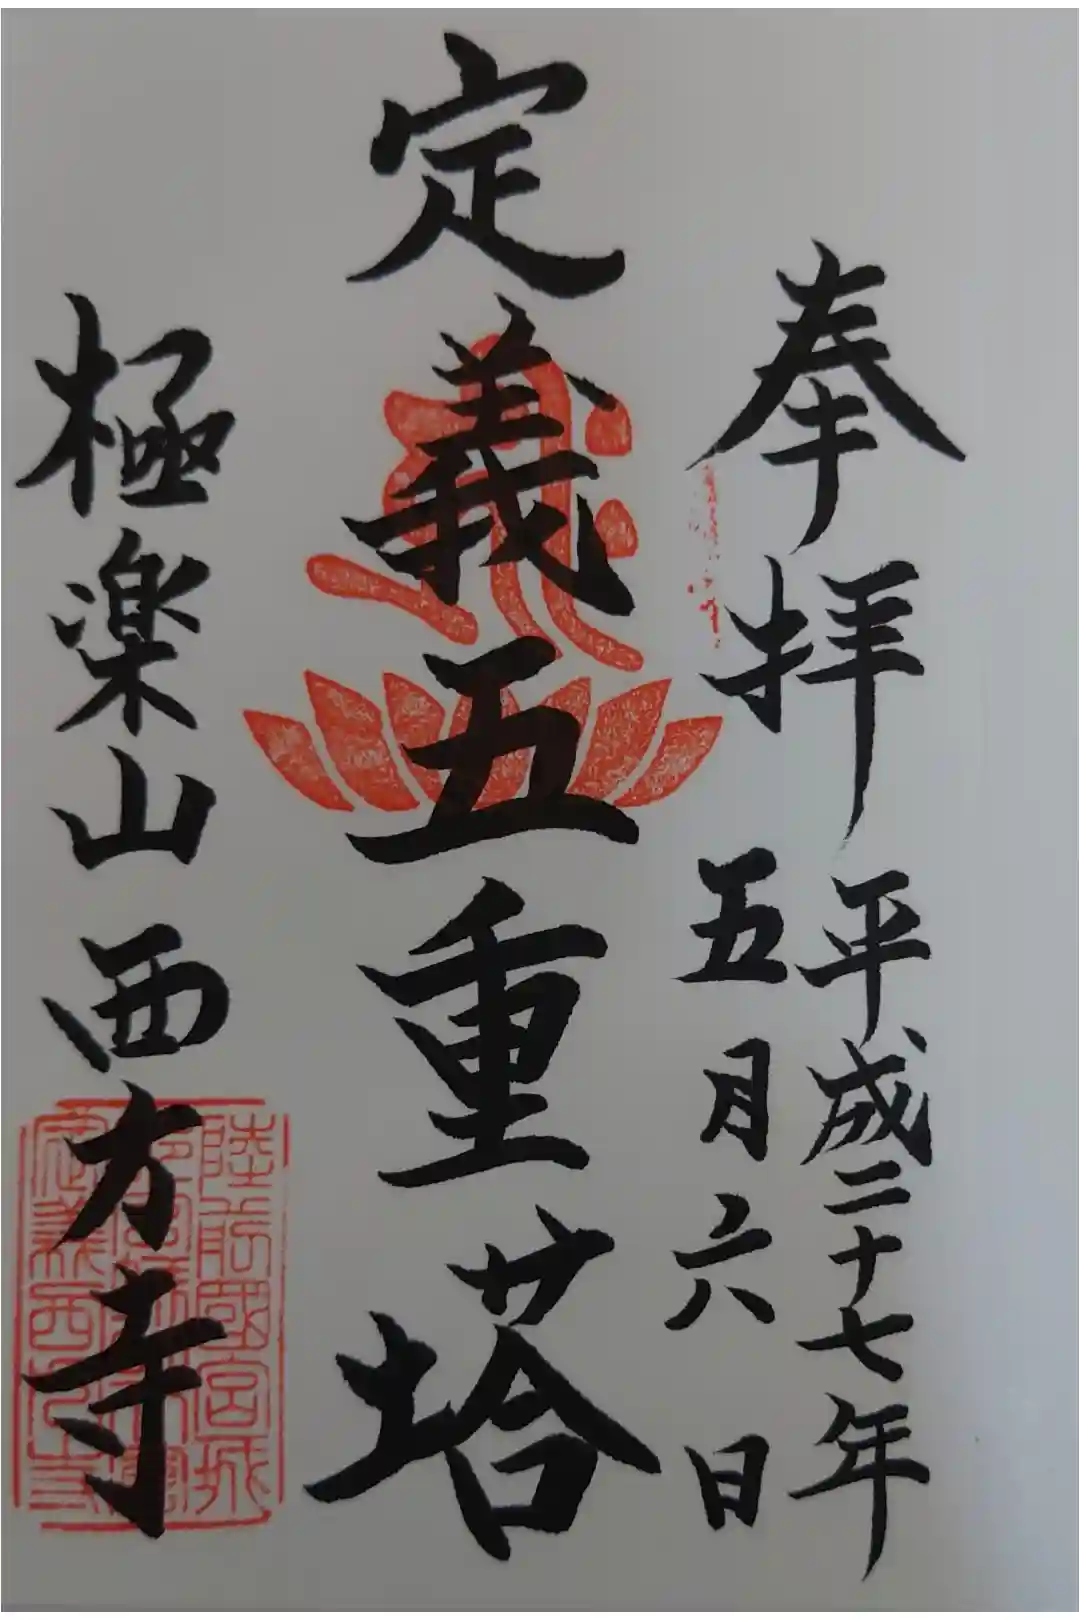 奉拝
平成二十七年
五月六日
定義五重塔
極楽山西方寺
陸前國宮城
定義西方寺